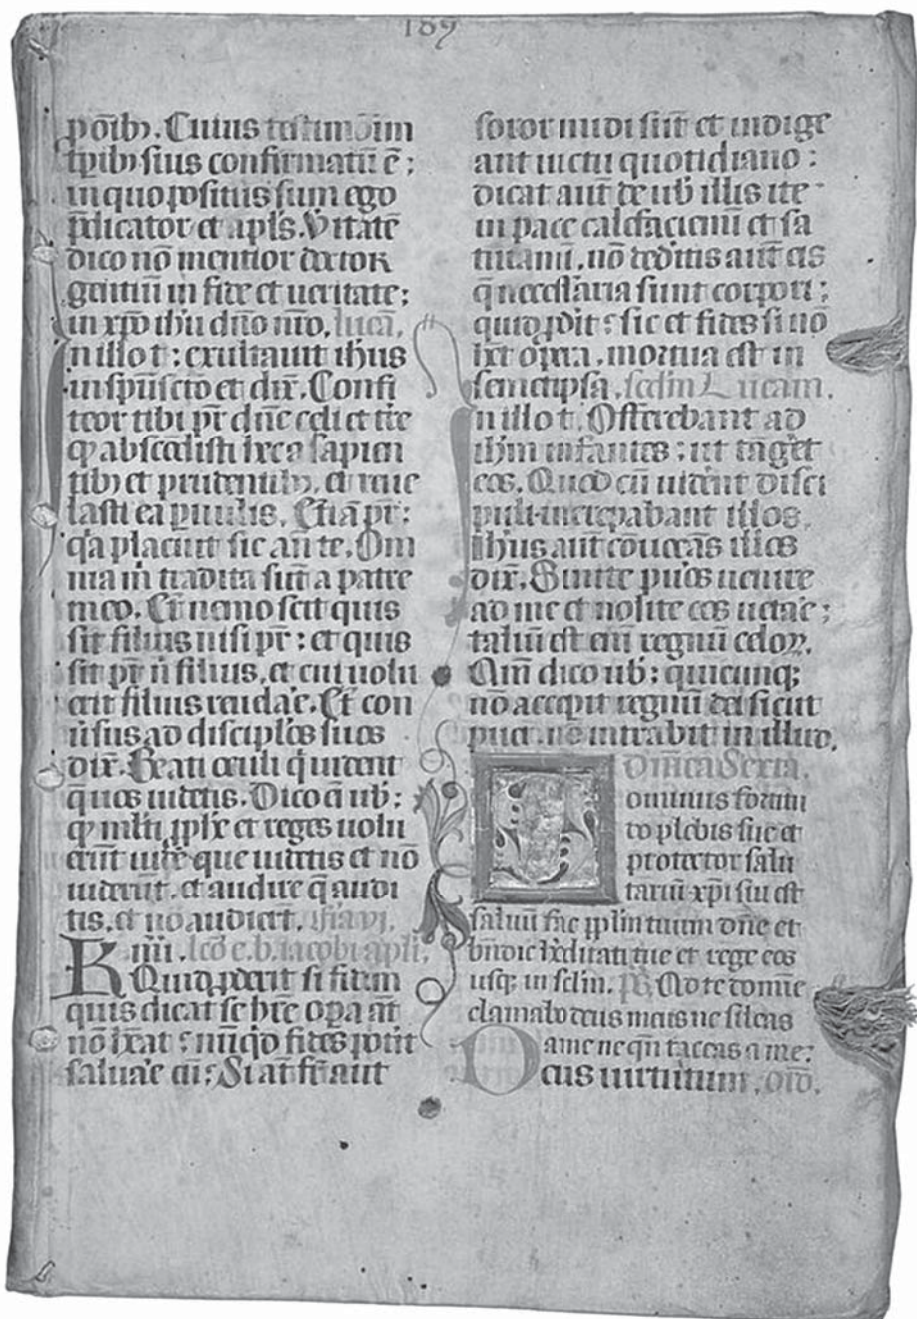 189
põibꝫ. Cuius testimoim
tpibꝫ suis confirmatũ ẽ;
in quo positus sum ego
p̃dicator et apls̃. Vitatẽ
dico nõ mentior doctor
gentiũ in fide et ueritate;
in xp̃o ihũ dño nrõ. lucã.
n illo t̃: exultauit ihus
in spũ scto et dix̃. Confi
teor tibi pr̃ dñe celi et tr̃e
qꝫ abscõdisti hec a sapien
tibꝫ et prudentibꝫ. et reue
lasti ea p̃uulis. Etiã pr̃:
qa placuit sic añ te. Om
nia m̃ tradita sũt a patre
meo. Et nemo scit quis
sit filius nisi pr̃: et quis
sit pr̃ ñ filius. et cui uolu
erit filius reuelar̃e. Et con
ũsus ad disciplõs suos
dix̃. Beati oculi q̃ uident
q̃ uos uidetis. Dico ã ub̃:
qꝫ mlti pphẽ et reges uolu
erũt uidr̃e que uidetis et nõ
uiderũt. et audire q̃ audi
tis. et nõ audierũt. fria vi.
R iiii. lcõ e.b. iacobi apli.
Quid pderit si fidem
quis dicat se hr̃e opa aũt
nõ hẽat: nũqd fides potit
saluar̃e eũ: Si aũt fr̃ aut
soror nudi sũt et indige
ant uictu quotidiano:
dicat aut̃ de ub̃ illis ite
in pace calefacienũ et sa
turamĩ. nõ deditis aut̃ eis
q̃ necessaria sunt corpori;
quid pdit: sic et fides si nõ
hẽt opera. mortua est in
semetipsa. sc̃dm Lucam.
n illo t̃. Offerebant ad
ihm̃ infantes: ut tãg̃et
eos. Quod cũ uidr̃ent disci
puli increpabant illos.
Ihus aut̃ cõuocãs illos
dix̃. Sinite pũos uenire
ad me et nolite eos uetar̃e;
taliũ est eni regnũ celoꝝ.
Am̃ dico ub̃: quicunqꝫ
nõ acceperit regnũ dei sicut
puer. nõ intrabit in illud.
Dm̃ica Sexta.
ominus fortitu
do plebis sue et
protector salu
tariũ xpi sui est
saluũ fac pplm tuum dñe et
bñdic hẽditati tue et rege eos
usqꝫ in sclm̃. ps̃. Ad te domie
clamabo deus meus ne sileas
a me ne qñ taceas a me:
Deus uirtutum. orõ.